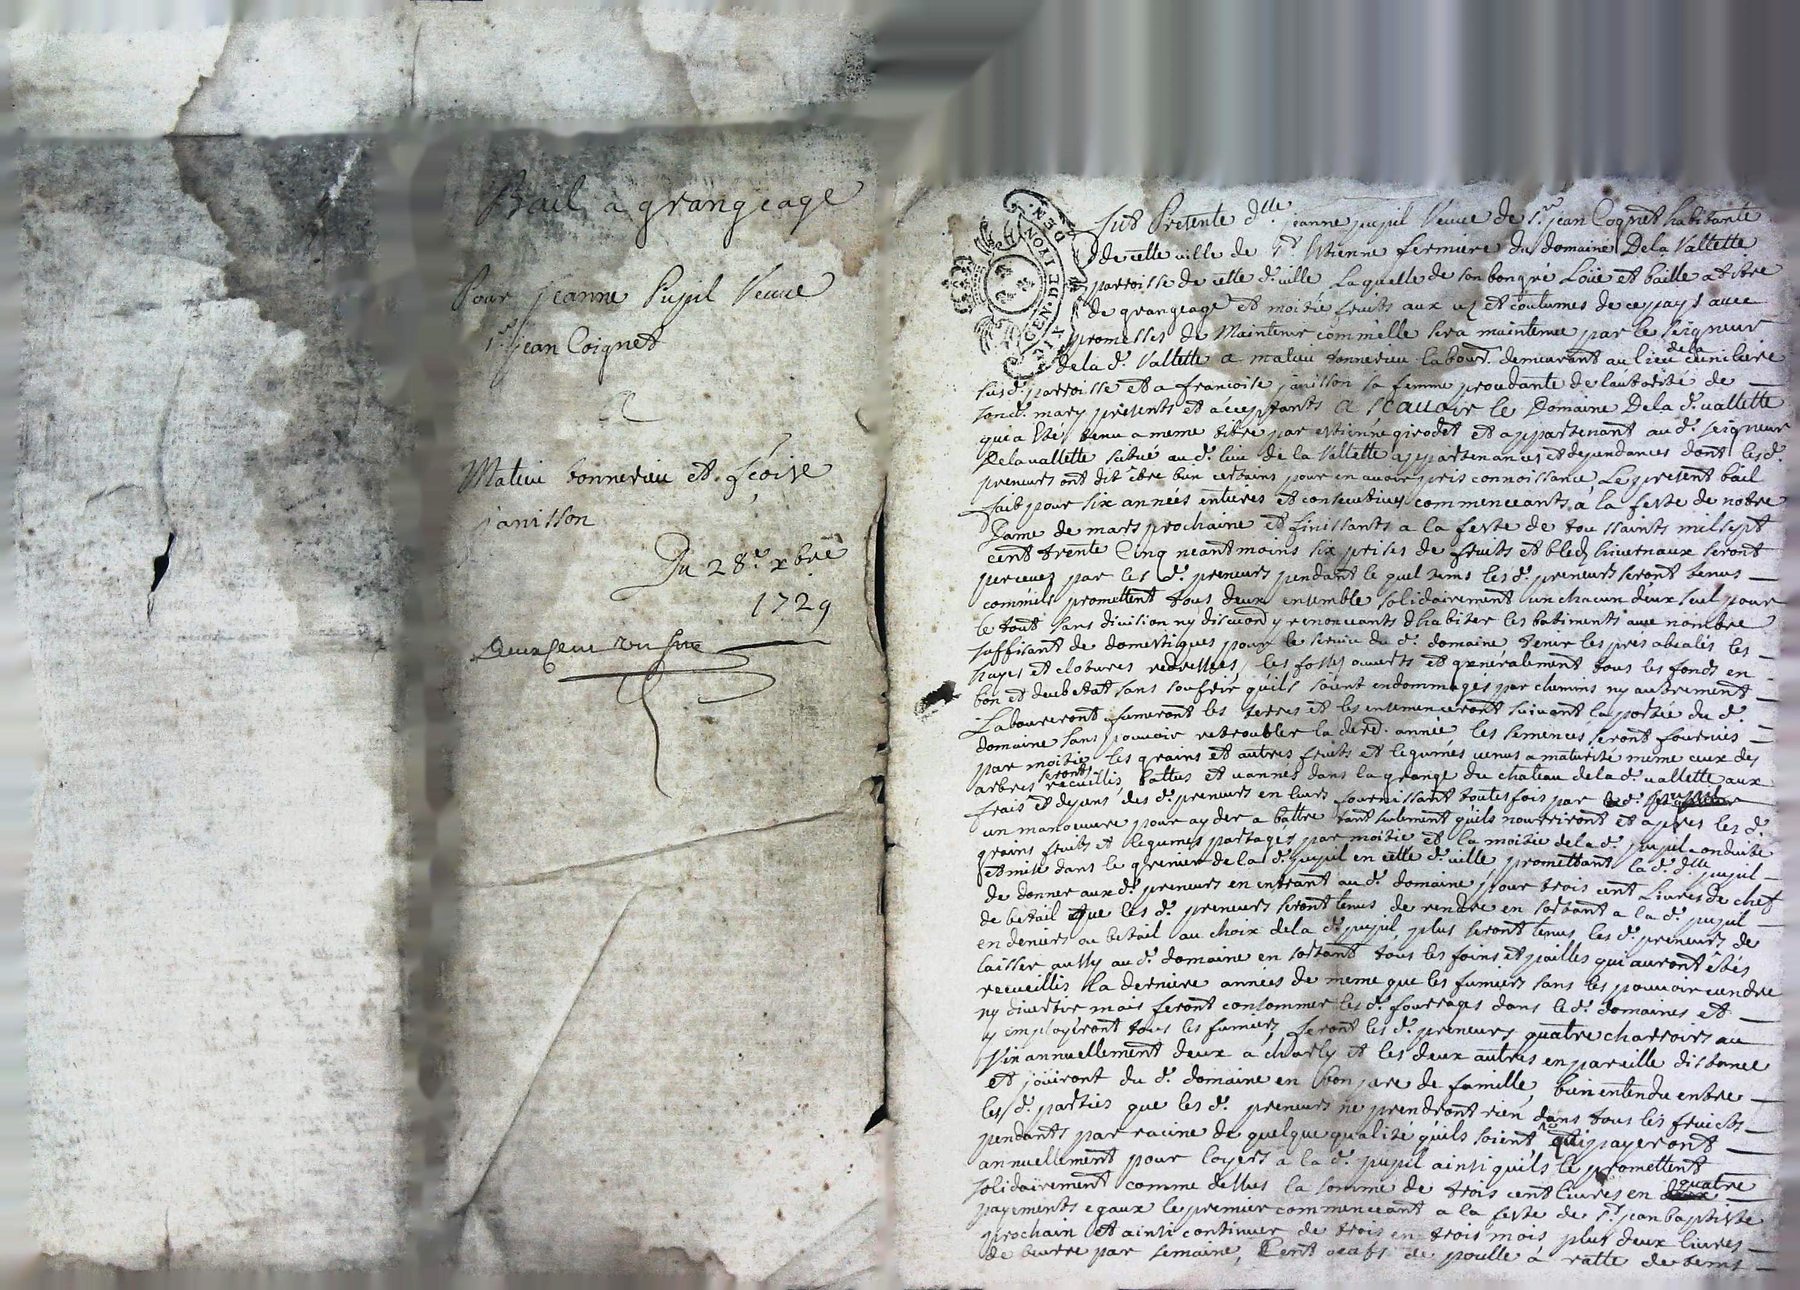 Bail à grangeage
Pour jeanne Pupil Veuve
Sr. jean Coignet
A
Matieu bonnerieu et fcoise
janisson
Du 28e. xbre
1729
GEN. DE LYON
fut Presente dlle jeanne pupil Veuve de Sr. jean Cognet habitante
de cette ville de St Etienne fermiere du domaine De la Vallette
parroisse de cette d. ville Laquelle de son bon gré Loüe et baille a titre
de grangeage et moitié fruits aux us et coutumes de ce pays avec
promesses de Maintenir comme elle sera maintenue par le seigneur
de la d. Vallette a matieu bonnerieu labour. demeurant au lieu de la
susd. parroisse et a francoise janisson sa femme procedante de l'autorité de
sond. mary presents et acceptants a scavoir le Domaine De la d. vallette
qui a Eté tenu a meme titre par estienne girodet et appartenant au d. seigneur
De la vallette situé au d. lieu de la Vallette appartenances et dependances dont les d.
preneurs ont dit être bien certains pour en avoir pris connoissance Le present bail
fait pour six années entieres et consecutives commenceants à la feste de notre
Dame de mars prochaine et finissants a la feste de toussaints mil sept
cent trente Cinq neantmoins six prises de fruits et bleds hivernaux seront
perceues par les d. preneurs pendant le quel tems les d. preneurs seront tenus
comm'ils promettent tous deux ensemble solidairement un chacun deux seul pour
le tout sans division ny discution y renonceants d'habiter les batiments avec nombre
suffisant de domestiques pour le service du d. domaine tenir les prés les
hayes et clotures redressées, les fossés ouverts et generalement tous les fonds en
bon et deub etat sans soufrir qu'ils soient endommagés par chemins ny autrement
Laboureront fumeront les terres et les ensemenceront suivant la portée du d.
domaine sans pouvoir retroubler la dere. année les semences seront fournies
par moitié les grains et autres fruits et legumes venus a maturité meme ceux des
arbres seront recueillis battus et vannés dans la grange du chateau de la d. vallette aux
frais et depens des d. preneurs en leurs fournissant toutes fois par
un manoeuvre pour ayder a battre tant seulement qu'ils nourriront et apres les d.
grains fruits et legumes partagés par moitié et la moitié de la d. pupil conduite
et mise dans le grenier de la d. pupil en cette d. ville promettant la d. dlle pupil
de donner aux d. preneurs en entrant au d. domaine pour trois cent Livres de chef
de betail que les d. preneurs seront tenus de rendre en sortant a la d. pupil
en deniers ou betail au choix de la d. pupil, plus seront tenus les d. preneurs de
laisser aussy au d. domaine en sortant tous les foins et pailles qui auront êtés
recueillis la derniere années de meme que les fumiers sans les pouvoir vendre
ny divertir mais feront consommer les d. fourrages dans le d. domaines et
y employeront tous les fumiers, feront les d. preneurs quatre charroirs au
annuellement deux a charly et les deux autres en pareille distance
et jöuiront du d. domaine en bon pere de famille, bien entendu entre
les d. parties que les d. preneurs ne prendront rien dans tous les fruicts
pendants par racine de quelque qualité qu'ils soient payeront
annuellement pour loyers a la d. pupil ainsi qu'ils le promettent
solidairement comme dessus la somme de trois cent livres en quatre
payements egaux le premier commenceant a la feste de St jean baptiste
prochain et ainsi continuer de trois en trois mois plus deux livres
de beurre par semaine, Cent oeufs de poulle à ratte de tems